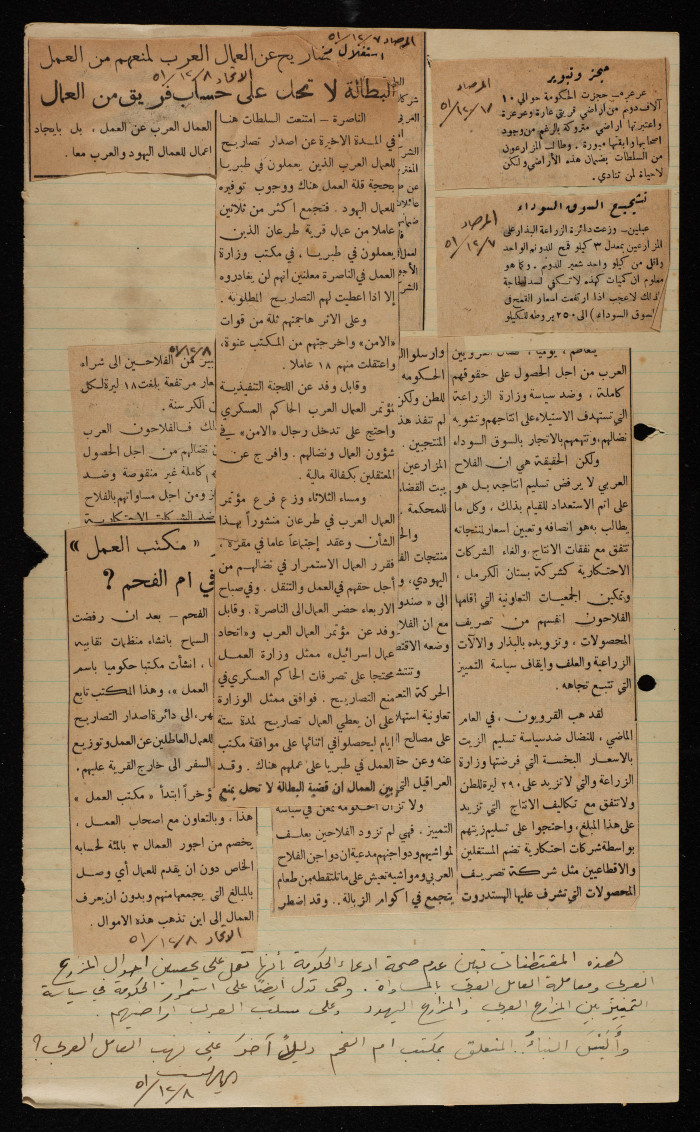 المرصاد ٥١/١٢/٧
استغلال تصاريح عن العمال العرب لمنعهم من العمل
الاتحاد ٥١/١٢/٨
البطالة لا تحل على حساب فريق من العمال
الناصرة – امتنعت السلطات هنا
في المدة الاخيرة عن اصدار تصاريح
للعمال العرب الذين يعملون في طبريا
بحجة قلة العمل هناك ووجوب توفيره
للعمال اليهود . فتجمع اكثر من ثلاثين
عاملا من عمال قرية طرعان الذين
يعملون في طبريا ، في مكتب وزارة
العمل في الناصرة معلنين انهم لن يغادروه
إلا اذا اعطيت لهم التصاريح المطلوبة .
وعلى الاثر هاجمتهم ثلة من قوات
«الامن» واخرجتهم من المكتب عنوة،
واعتقلت منهم ١٨ عاملا .
وقابل وفد عن اللجنة التنفيذية
لمؤتمر العمال العرب الحاكم العسكري
واحتج على تدخل رجال «الامن» في
شؤون العمال ونضالهم . وافرج عن
المعتقلين بكفالة مالية .
ومساء الثلاثاء وزع فرع مؤتمر
العمال العرب في طرعان منشوراً بهذا
الشأن وعقد إجتماعاً عاما في مقره ،
فقرر العمال الاستمرار في نضالهم من
أجل حقهم في العمل والتنقل . وفي صباح
الاربعاء حضر العمال الى الناصرة . وقابل
وفد عن مؤتمر العمال العرب و«اتحاد
عمال اسرائيل» ممثل وزارة العمل
محتجا على تصرفات الحاكم العسكري في
منع التصاريح . فوافق ممثل الوزارة
على ان يعطي العمال تصاريح لمدة ستة
ايام ليحصلوا في اثنائها على موافقة مكتب
العمل في طبريا على عملهم هناك . وقد
بين العمال ان قضية البطالة لا تحل بمنع
العمال العرب عن العمل ، بل بايجاد
اعمال للعمال اليهود والعرب معا .
حجز وتبوير
المرصاد
٥١/١٢/٧
عرعره – حجزت الحكومة حوالي ١٠
آلاف دونم من اراضي قريتي عارة وعرعرة
واعتبرتها اراضي متروكة بالرغم من وجود
اصحابها وابقتها مبورة . وطالب المزارعون
من السلطات بضمان هذه الأراضي ولكن
لا حياة لمن تنادي .
تشجيع السوق السوداء
المرصاد
٥١/١٢/٧
عبلين – وزعت دائرة الزراعة البذار على
المزارعين بمعدل ٣ كيلو قمح للدونم الواحد
واقل من كيلو واحد شعير للدونم . ومما هو
معلوم ان كميات كهذه لا تكفي لسد الحاجة
لذلك لا عجب اذا ارتفعت اسعار القمح في
(السوق السوداء) الى ٢٥٠ بروطه للكيلو
العرب من اجل الحصول على حقوقهم
كاملة ، وضد سياسة وزارة الزراعة
التي تستهدف الاستيلاء على انتاجهم وتشويه
نضالهم، وتتهمهم بالاتجار بالسوق السوداء
ولكن الحقيقة هي ان الفلاح
العربي لا يرفض تسليم انتاجه بل هو
على اتم الاستعداد للقيام بذلك ، وكل ما
يطالب به هو انصافه وتعيين اسعار لمنتجاته
تتفق مع نفقات الانتاج، والغاء الشركات
الاحتكارية كشركة بستان الكرمل ،
وتمكين الجمعيات التعاونية التي اقامها
الفلاحون انفسهم من تصريف
المحصولات ، وتزويده بالبذار والآلات
الزراعية والعلف وايقاف سياسة التمييز
التي تتبع تجاهه .
لقد هب القرويون ، في العام
الماضي ، للنضال ضد سياسة تسليم الزيت
بالاسعار البخسة التي فرضتها وزارة
الزراعة والتي لا تزيد على ٢٩٠ ليرة للطن
ولا تتفق مع تكاليف الانتاج التي تزيد
على هذا المبلغ، واحتجوا على تسليم زيتهم
بواسطة شركات احتكارية تضم المستغلين
والاقطاعيين مثل شركة تصريف
المحصولات التي تشرف عليها الهستدروت
وارسلوا
الحكومه
للطن ولكن
لم تنفذ هذ
المنتجين .
المزارعين
بيت القضاء
للمحكمة ،
منتجات
اليهودي، و
الى « صندو
مع ان الفلا
وضعه الاقت
وتتشد
الحركة التع
تعاونية استهلا
على مصالح
عنه وعن حق
العراقيل التي
ولا تزال الحكومة تمعن في سياسة
التمييز . فهي لم تزود الفلاحين بعلف
لمواشيهم ودواجنهم مدعية ان دواجن الفلاح
العربي ومواشيه تعيش على ما تلتقطه من طعام
يتجمع في اكوام الزبالة .. وقد اضطر
٥١/١٢/٨
من الفلاحين الى شراء
مرتفعة بلغت ١٨ ليرة لكل
الكرسنة .
فالفلاحون العرب
نضالهم من اجل الحصول
كاملة غير منقوصة وضد
ومن اجل مساواتهم بالفلاح
ضد الشركات الاحتكارية
« مكتب العمل »
في ام الفحم ؟
الفحم – بعد ان رفضت
السماح بانشاء منظمات نقابيه
، انشأت مكتبا حكوميا باسم
العمل »، وهذا المكتب تابع
الى دائرة اصدار التصاريح
للعمال العاطلين عن العمل وتوزيع
السفر الى خارج القرية عليهم .
وأخراً ابتدأ « مكتب العمل »
هذا ، وبالتعاون مع اصحاب العمل ،
يخصم من اجور العمال ٣ بالمئة لحسابه
الخاص دون ان يقدم للعمال أي وصل
بالمبالغ التي يجمعها منهم وبدون ان يعرف
العمال الى اين تذهب هذه الاموال .
الاتحاد ٥١/١٢/٨
هذه المقتطفات تبين عدم صحة ادعاء الحكومة بأنها تعمل على تحسين احوال المزارع
العربي ومعاملة العامل العربي بالمساواة . وهي تدل ايضاً على استمرار الحكومة في سياسة
التمييز بين المزارع العربي والمزارع اليهودي وعلى سلب العرب اراضيهم .
وأليس النبأ المتعلق بمكتب ام الفحم دليلاً آخر على نهب العامل العربي ؟
٥١/١٢/٨